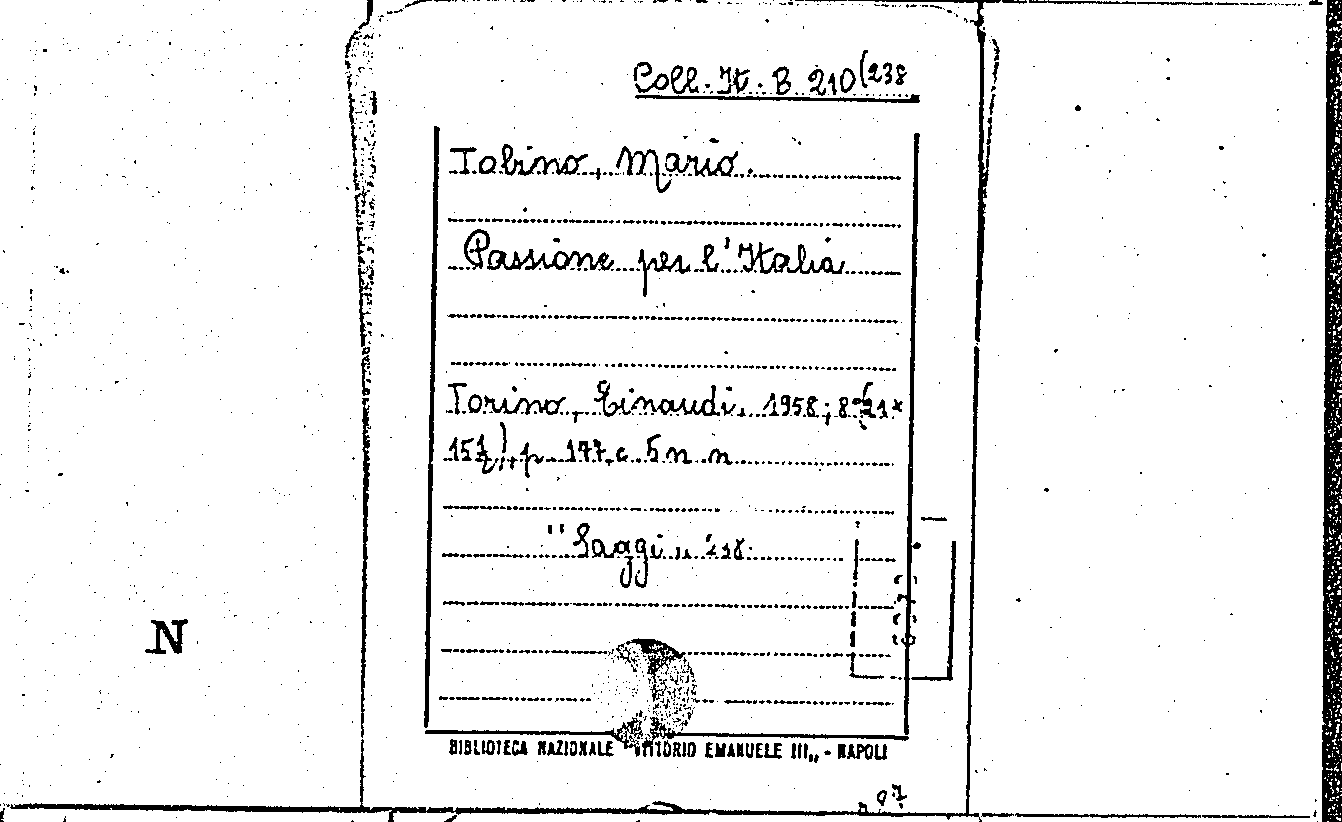 Coll. It. B 210(238
Tobino, Mario.
Passione per l'Italia
Torino, Einaudi, 1958; 8°(21×
15½), p. 177, c. 5 n. n.
"Saggi" 238.
N
BIBLIOTECA NAZIONALE "VITTORIO EMANUELE III„ - NAPOLI